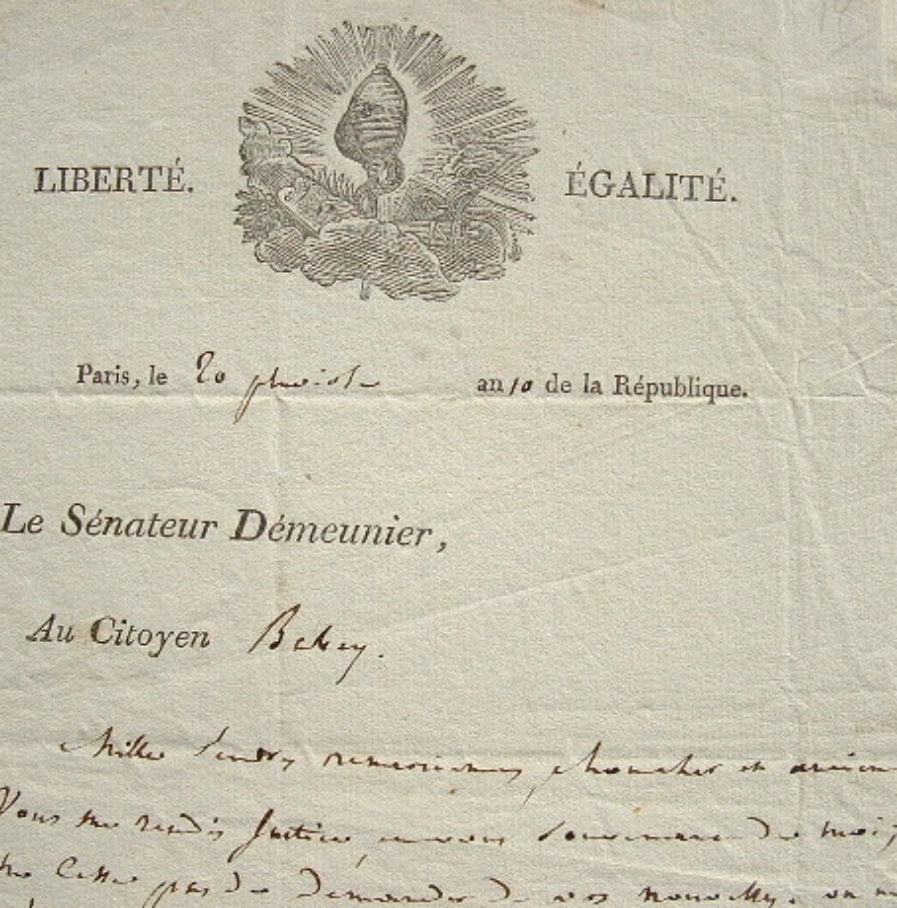 LIBERTÉ. ÉGALITÉ.
Paris, le 20 pluviose an 10 de la République.
Le Sénateur Démeunier,
Au Citoyen Babey.
Mille tendres remerciemens, honnete et ancien
Vous me rendés justice, en vous souvenant de moi,
ne cesse pas de demander de vos nouvelles.